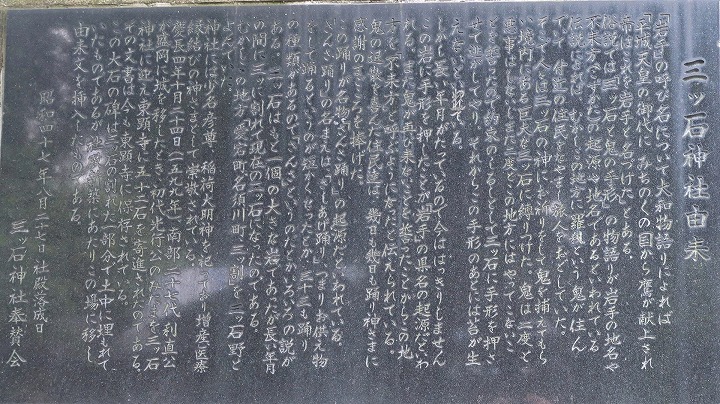 三ッ石神社由来
「岩手の呼び名について大和物語りによれば
「平城天皇の御代に、みちのくの国から鷹が献上され
帝はこれを岩手と名づけた」とある。
伝説では三ッ石と鬼の手形の物語りが岩手の地名や
不来方(こずかた)の起源や地名であるといわれている
伝説によれば、むかしこの地方に羅刹という鬼が住ん
でいて、付近の住民をなやまし、旅人をおどしていた。
そこで人々は三ッ石の神にお祈りをして鬼を捕えてもら
い境内にある巨大な三ッ石に縛りつけた。鬼は二度と
悪事はしない。また二度とこの地方にはやってこないこ
とを誓ったので約束のしるしとして三ッ石に手形を押さ
せて逃がしてやり、それからこの手形のあとには苔が生
えないといわれている。
しかし長い年月がたっているので今ははっきりしません
この岩に手形を押したことが「岩手」の県名の起源だといわ
れる。また、鬼が再び来ないことを誓ったことからこの地
方を「不来方」と呼ぶようになったと伝えられている。
鬼の退散を喜んだ住民達は、幾日も幾日も踊り、神さまに
感謝のまごころを捧げた。
この踊りが名物「さんさ踊り」の起源だともいわれている。
「さんさ踊り」の名まえは「さしあげ踊り」つまりお供え物
をして踊るというのが短かくせつたとか、三十三も踊り
の種類があるので「さんさ」というのだとかいろいろの説が
ある。三ッ石はもと一個の大きな岩であったが長い年月
の間に三つに割れて現在の三ッ石になったのである。
むかしこの地方(愛宕町、名須川町、三ッ割)を三ッ石野と
よんでいた。
神社には少名彦尊、稲荷大明神を祀っており、増産、医療
縁結びの神さまとして崇敬されている。
慶長四年十月二十四日(一五九九年)南部二十七代利直公
が盛岡に城を移したとき初代光行公のみたまを三ッ石
神社に迎え東顕寺に五十二石を寄進されたのである。
その文書は今も東顕寺に保存されている。
この大石の碑は三ッ石の割れた一部分で土中に埋もれて
いたものであるが 改築にあたりこの場に移し、
由来文を挿入したものである。
昭和四十七年八月二十七日 社殿落成日
三ッ石神社奉賛会